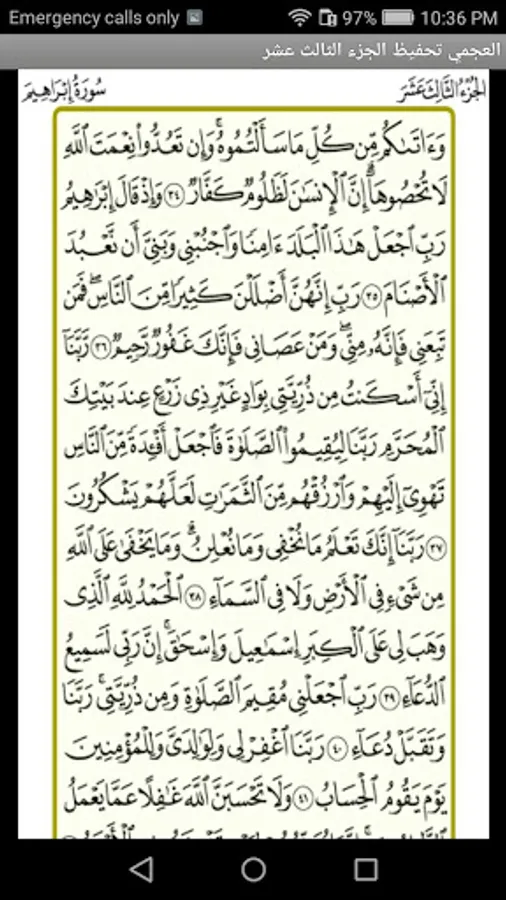 Emergency calls only 97% 10:36 PM
العجمي تحفيظ الجزء الثالث عشر
الجُزْءُ الثَّالِثَ عَشَرَ سُورَةُ إِبْرَاهِيمَ
وَءَاتَىٰكُم مِّن كُلِّ مَا سَأَلْتُمُوهُ ۚ وَإِن تَعُدُّوا۟ نِعْمَتَ ٱللَّهِ
لَا تُحْصُوهَآ ۗ إِنَّ ٱلْإِنسَـٰنَ لَظَلُومٌ كَفَّارٌ ٣٤ وَإِذْ قَالَ إِبْرَٰهِيمُ
رَبِّ ٱجْعَلْ هَـٰذَا ٱلْبَلَدَ ءَامِنًا وَٱجْنُبْنِى وَبَنِىَّ أَن نَّعْبُدَ
ٱلْأَصْنَامَ ٣٥ رَبِّ إِنَّهُنَّ أَضْلَلْنَ كَثِيرًا مِّنَ ٱلنَّاسِ ۖ فَمَن
تَبِعَنِى فَإِنَّهُۥ مِنِّى ۖ وَمَنْ عَصَانِى فَإِنَّكَ غَفُورٌ رَّحِيمٌ ٣٦ رَّبَّنَآ
إِنِّىٓ أَسْكَنتُ مِن ذُرِّيَّتِى بِوَادٍ غَيْرِ ذِى زَرْعٍ عِندَ بَيْتِكَ
ٱلْمُحَرَّمِ رَبَّنَا لِيُقِيمُوا۟ ٱلصَّلَوٰةَ فَٱجْعَلْ أَفْـِٔدَةً مِّنَ ٱلنَّاسِ
تَهْوِىٓ إِلَيْهِمْ وَٱرْزُقْهُم مِّنَ ٱلثَّمَرَٰتِ لَعَلَّهُمْ يَشْكُرُونَ
٣٧ رَبَّنَآ إِنَّكَ تَعْلَمُ مَا نُخْفِى وَمَا نُعْلِنُ ۗ وَمَا يَخْفَىٰ عَلَى ٱللَّهِ
مِن شَىْءٍ فِى ٱلْأَرْضِ وَلَا فِى ٱلسَّمَآءِ ٣٨ ٱلْحَمْدُ لِلَّهِ ٱلَّذِى
وَهَبَ لِى عَلَى ٱلْكِبَرِ إِسْمَـٰعِيلَ وَإِسْحَـٰقَ ۚ إِنَّ رَبِّى لَسَمِيعُ
ٱلدُّعَآءِ ٣٩ رَبِّ ٱجْعَلْنِى مُقِيمَ ٱلصَّلَوٰةِ وَمِن ذُرِّيَّتِى ۚ رَبَّنَا
وَتَقَبَّلْ دُعَآءِ ٤٠ رَبَّنَا ٱغْفِرْ لِى وَلِوَٰلِدَىَّ وَلِلْمُؤْمِنِينَ
يَوْمَ يَقُومُ ٱلْحِسَابُ ٤١ وَلَا تَحْسَبَنَّ ٱللَّهَ غَـٰفِلًا عَمَّا يَعْمَلُ